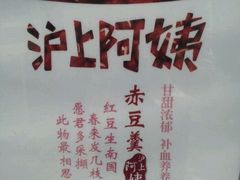 沪上阿姨
甘甜浓郁 补血养
赤豆羹
沪上阿姨
红豆生南国
春来发几枝
愿君多采撷
此物最相思